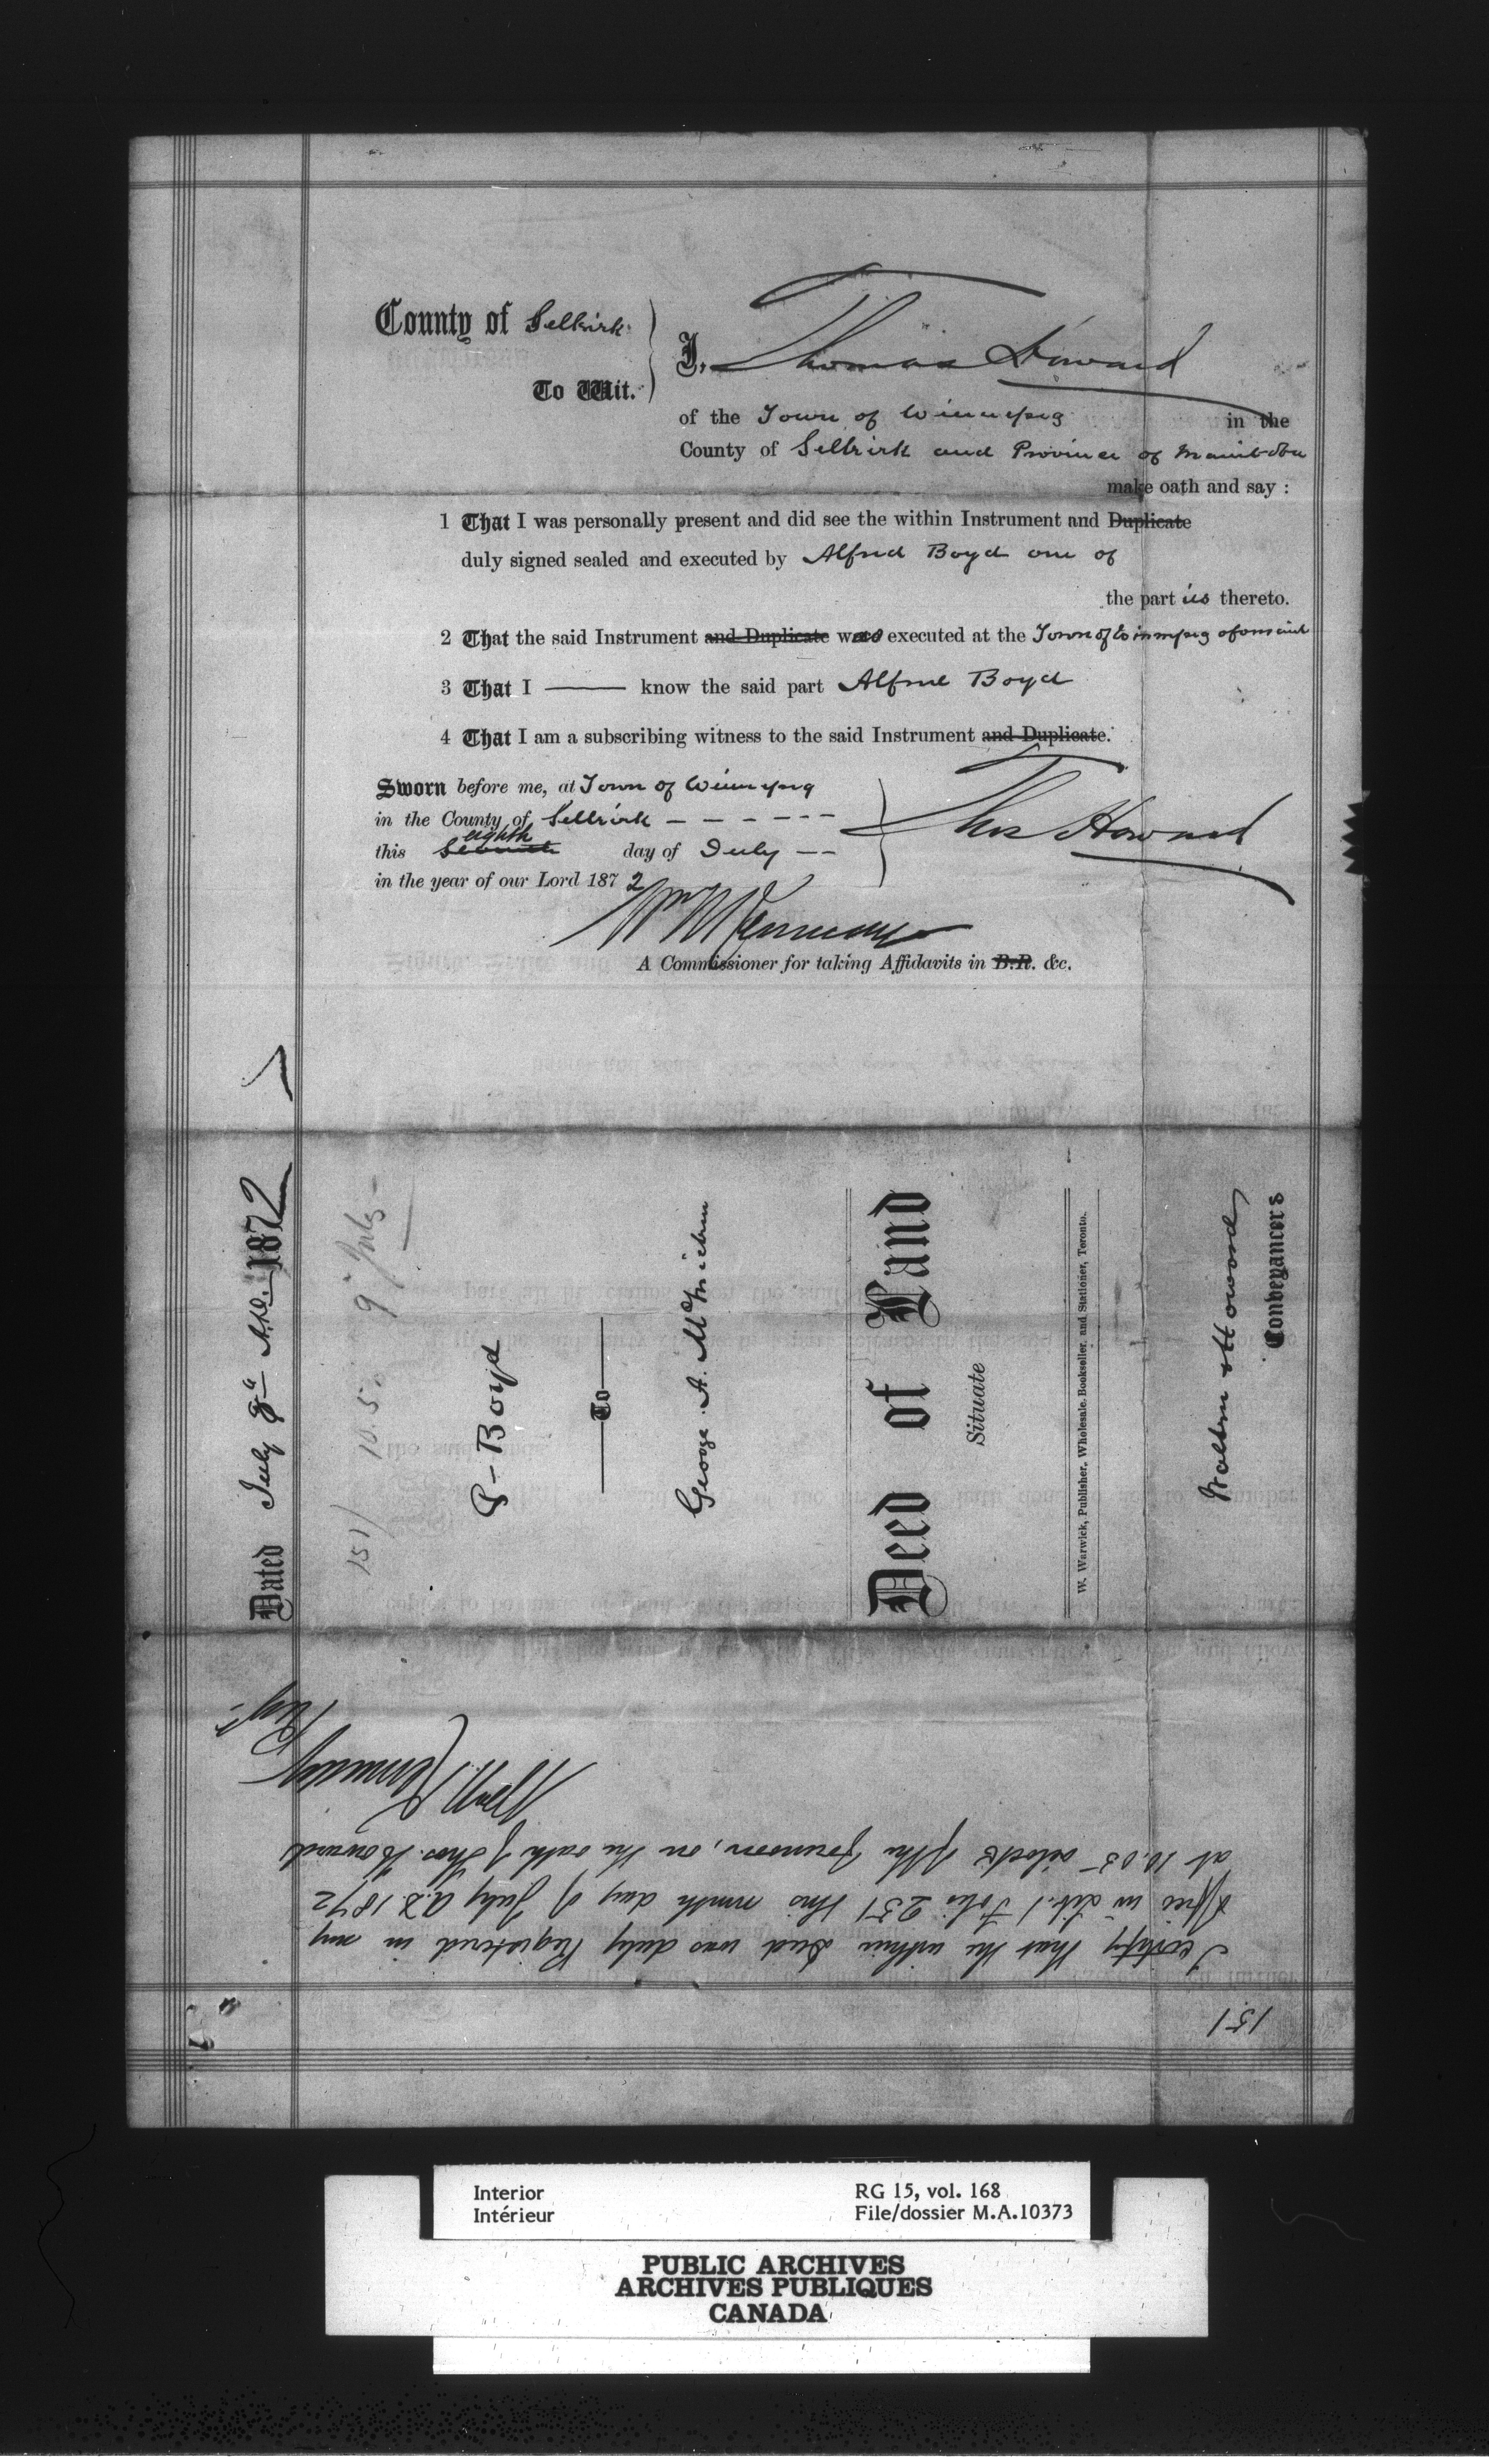 County of Selkirk
To Wit.
I, Thomas Howard
of the Town of Winnipeg in the
County of Selkirk and Province of Manitoba
make oath and say :
1 That I was personally present and did see the within Instrument and Duplicate
duly signed sealed and executed by Alfred Boyd one of
the part ies thereto.
2 That the said Instrument and Duplicate was executed at the Town of Winnipeg
3 That I —— know the said part Alfred Boyd
4 That I am a subscribing witness to the said Instrument and Duplicate.
Sworn before me, at Town of Winnipeg
in the County of Selkirk – – – – – –
eighth
this seventh day of July – –
in the year of our Lord 1872
Thos Howard
Wm N Kennedy
A Commissioner for taking Affidavits in B.R. &c.
Dated July 8th A.D. 1872
151/ 10.5 9th July
Boyd
To
George. A. McMicken
Deed of Land
Situate
W. Warwick, Publisher, Wholesale Bookseller, and Stationer, Toronto.
Walker & Howard
Conveyancers
151
I certify that the within Deed was duly Registered in my
Office in Lib. 1 Folio 251 this ninth day of July A.D. 1872
at 10.05 oclock of the forenoon, on the oath of Thos. Howard
Wm N Kennedy
Regr
Interior
Intérieur
RG 15, vol. 168
File/dossier M.A.10373
PUBLIC ARCHIVES
ARCHIVES PUBLIQUES
CANADA